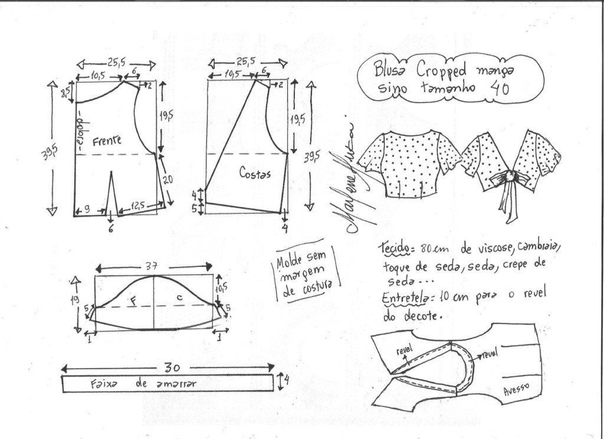 Blusa Cropped manga
sino tamanho 40
25,5
10,5
6
2
19,5
39,5
-dobra-
Frente
20
9
12,5
6
25,5
10,5
6
2
19,5
39,5
Costas
4
5
4
Marlene Mukai
Molde sem
margem
de costura
Tecido= 80cm de viscose, cambraia,
toque de seda, seda, crepe de
seda...
Entretela= 10 cm para o revel
do decote.
37
19
10,5
F
C
5
5
1
1
30
Faixa de amarrar
4
revel
revel
Avesso